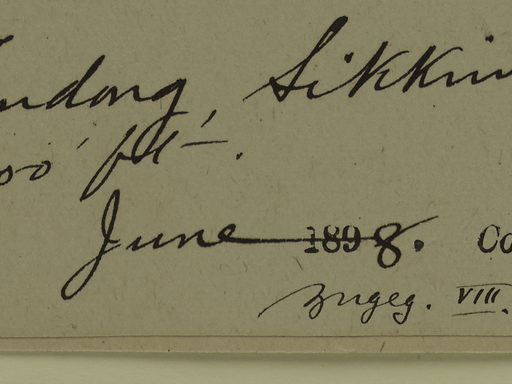 ndong, Sikkim
00 ft.
June 1898. Co
zugeg. VIII.